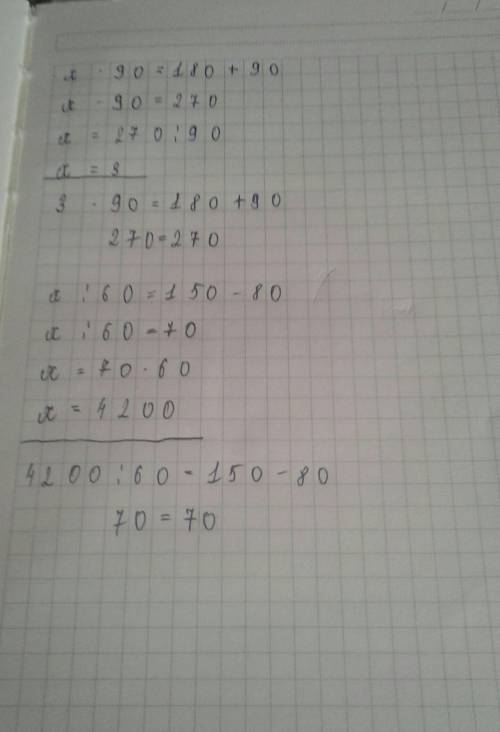 x · 90 = 180 + 90
x · 90 = 270
x = 270 : 90
x = 3
3 · 90 = 180 + 90
270 = 270
x : 60 = 150 - 80
x : 60 = 70
x = 70 · 60
x = 4200
4200 : 60 = 150 - 80
70 = 70